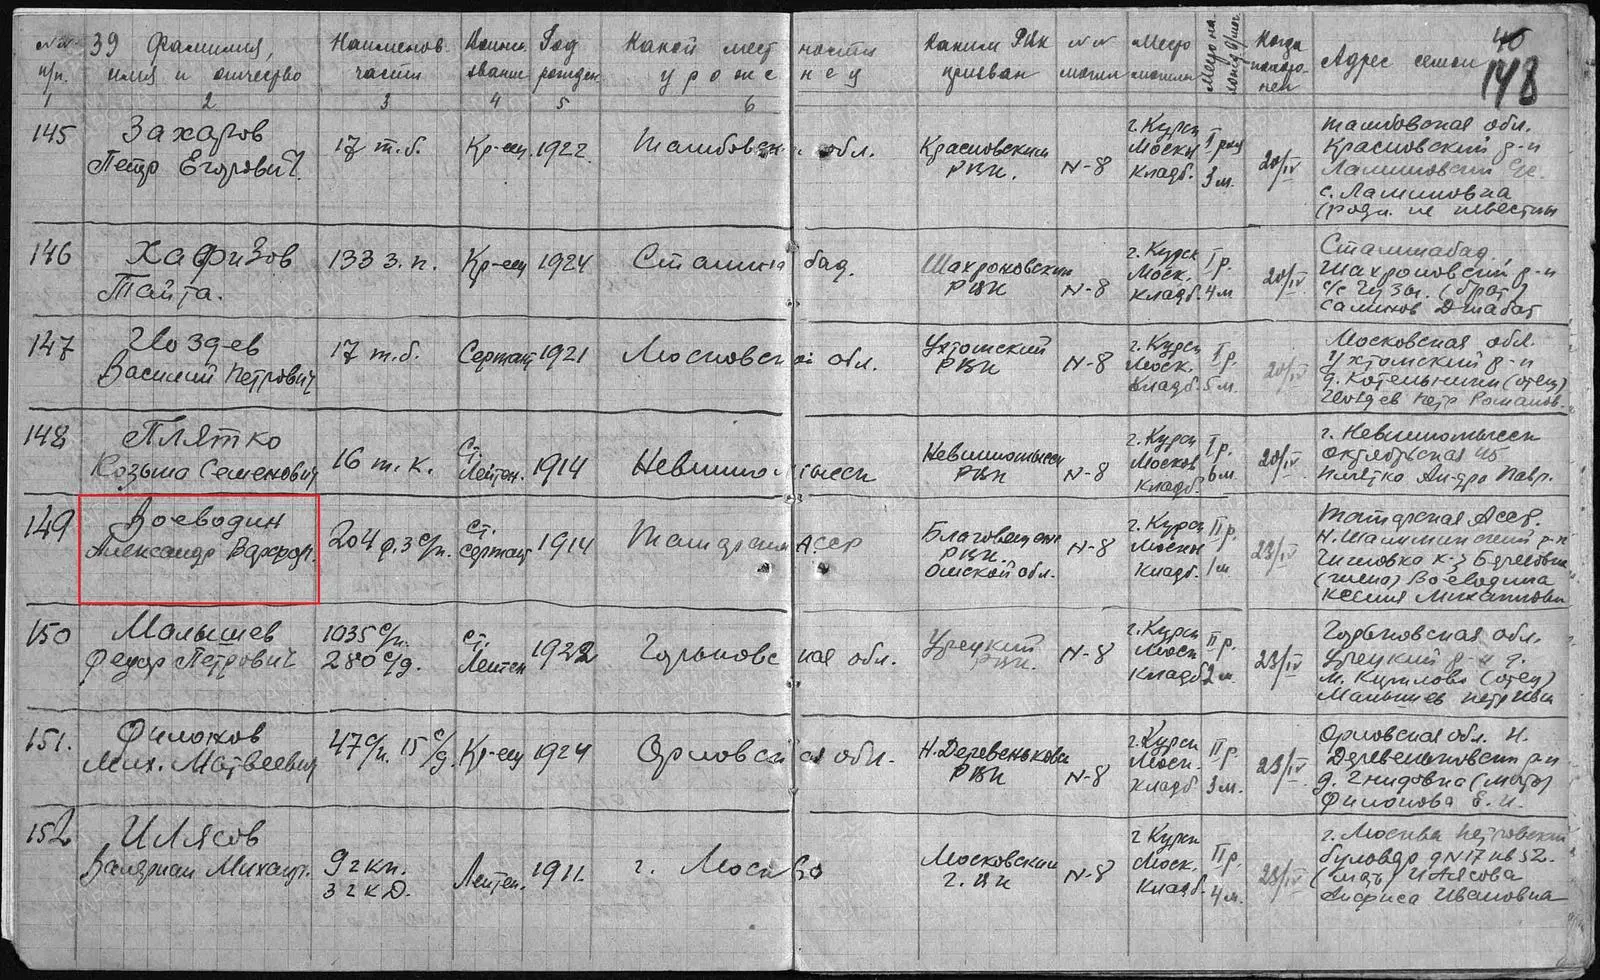 №№ п/п. 39 Фамилия, имя и отчество
Наименов. части
Воинск. звание
Год рожден.
Какой местности уроженец
Каким РВК призван
№№ могил
Место могилы
Когда похоронен
Адрес семьи
40
148
1 2 3 4 5 6
145 Захаров Петр Егорович. 17 т.б. Кр-ец 1922. Тамбовск. обл. Красивский РВК. N-8 г. Курск Моск кладб. I ряд 3 м. 20/IV
Тамбовская обл.
с. Ламиновка
(родн. не известны
146 Хафизов Тайта. 133 з.п. Кр-ец 1924 Сталинабад. Шахроновский РВК N-8 г. Курск Моск. кладб. I р. 4 м 20/IV
Сталинабад.
(брат)
147 Гвоздев Василий Петрович 17 т.б. Сержант 1921 Московской обл. Ухтомский РВК N-8 г. Курск Моск. кладб. I р. 5 м. 20/IV
Московская обл.
Ухтомский р-н
д. Котельники (отец)
Гвоздев Петр Романов.
148 Плятко Козьма Семенович 16 т.к. Ст. Лейтен. 1914 Невинномысск Невинномысск РВК N-8 г. Курск Москов кладб. I р. 6 м. 20/IV
г. Невинномысск
Октябрьская 45
Плятко Ал-дра Павр.
149 Воеводин Александр Варфол. 204 с/п. Ст. сержант 1914 Татарская АССР Благовещенск РВК. Омской обл. N-8 г. Курск Москв кладб. II р. 1 м. 23/IV
Татарская АССР.
(жена) Воеводина
Ксения Михайловна
150 Малышев Федор Петрович 1035 с/п. 280 с/д. Ст. Лейтен 1922 Горьковская обл. Уренский РВК. N-8 г. Курск Моск кладб II р. 2 м. 23/IV
Горьковская обл.
Уренский р-н д.
М. Кирилово (отец)
Малышев Петр
151. Филонов Мих. Матвеевич 47 с/п. 15 с/д. Кр-ец 1924 Орловская обл. Н. Деревеньковс РВК N-8 г. Курск Моск. кладб II р. 3 м. 23/IV
Орловская обл. Н.
Деревеньковский р-н
д. Гнидовка (мать)
Филонова Е. И.
152 Илясов Валериан Михайл. 92 кп. 32 кд. Лейтен. 1911. г. Москва Московский г. ВК N-8 г Курск Моск. кладб II р. 4 м. 23/IV
г. Москва Петровский
бульвар д N17 кв 52.
(мать) Илясова
Лариса Ивановна